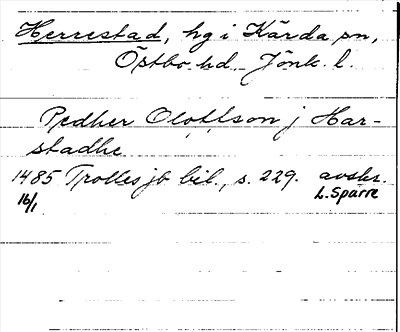 Herrestad, hg i Kärda sn,
Östbo hd. Jönk. l.
Pedher Oloffson j Har-
stadhe
1485 Trolles jb bil., s. 229. avskr.
16/1 L. Sparre